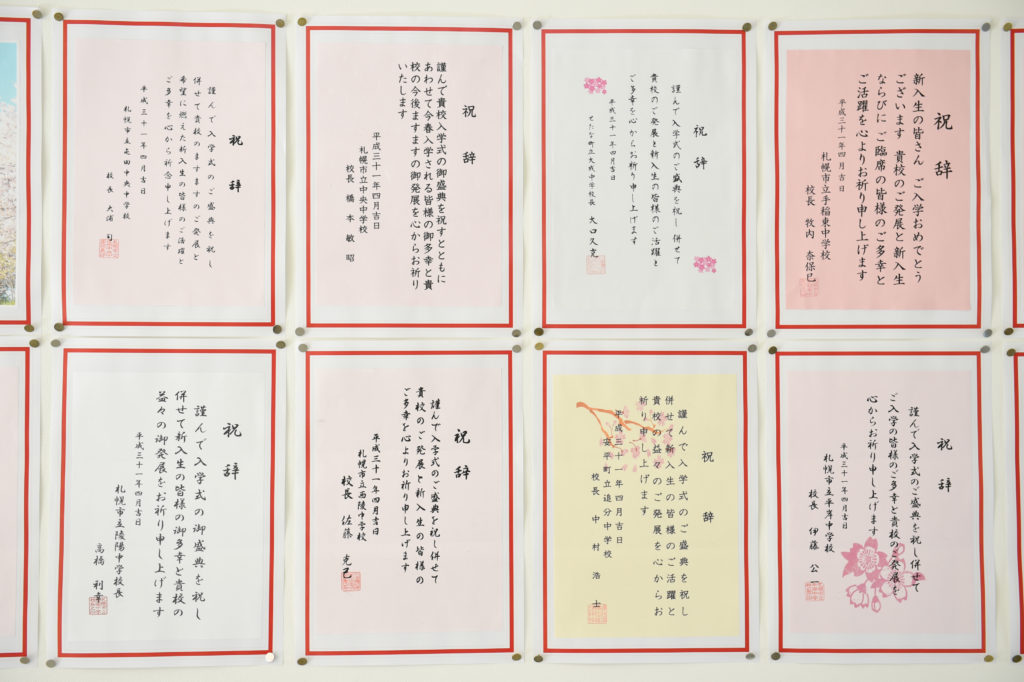 祝辞
謹んで入学式のご盛典を祝し
併せて貴校のますますのご発展と
希望に燃えた新入生の皆様のご活躍と
ご多幸を心から祈念申し上げます
平成三十一年四月吉日
札幌市立屯田中央中学校
校長 大浦
祝辞
謹んで貴校入学式の御盛典を祝すとともに
あわせて今春入学される皆様の御多幸と貴
校の今後ますますの御発展を心からお祈り
いたします
平成三十一年四月吉日
札幌市立中央中学校
校長 橋本敏昭
祝辞
謹んで入学式のご盛典を祝し 併せて
貴校のご発展と新入生の皆様のご活躍と
ご多幸を心からお祈り申し上げます
平成三十一年四月吉日
せたな町立大成中学校長 大口久克
祝辞
新入生の皆さん ご入学おめでとう
ございます 貴校のご発展と新入生
ならびに ご臨席の皆様のご多幸と
ご活躍を心よりお祈り申し上げます
平成三十一年四月吉日
札幌市立手稲東中学校
校長 牧内 奈保巳
祝辞
謹んで入学式の御盛典を祝し
併せて新入生の皆様の御多幸と貴校の
益々の御発展をお祈り申し上げます
平成三十一年四月吉日
札幌市立陵陽中学校長
高橋 利幸
祝辞
謹んで入学式のご盛典を祝し併せて
貴校のご発展と新入生の皆様の
ご多幸を心よりお祈り申し上げます
平成三十一年四月吉日
札幌市立西陵中学校
校長 佐藤 克己
祝辞
謹んで入学式のご盛典を祝し
併せて新入生の皆様のご活躍と
貴校の益々のご発展を心からお
祈り申し上げます
平成三十一年四月吉日
安平町立追分中学校
校長 中村 浩士
祝辞
謹んで入学式のご盛典を祝し併せて
ご入学の皆様のご多幸と貴校のご発展を
心からお祈り申し上げます
平成三十一年四月吉日
札幌市立平岸中学校
校長 伊藤 公一